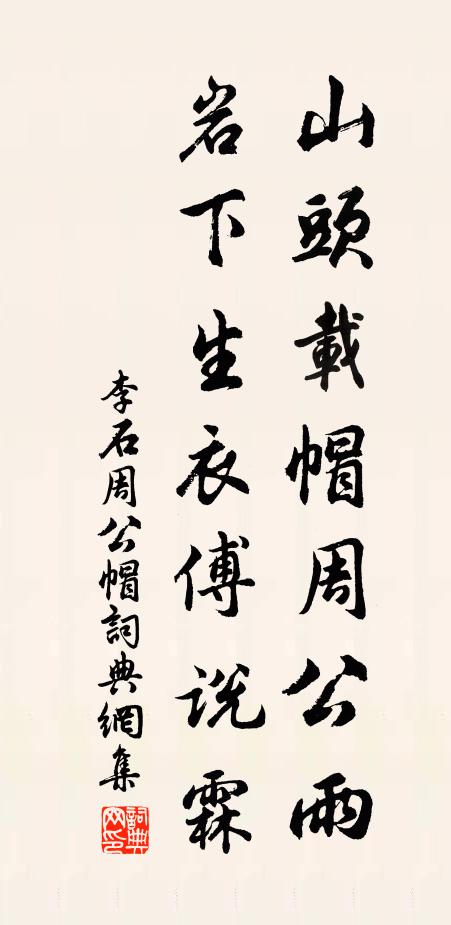 山頭載帽周公雨
岩下生衣傅説霖
李石周公帽詞典網集
詞典网印